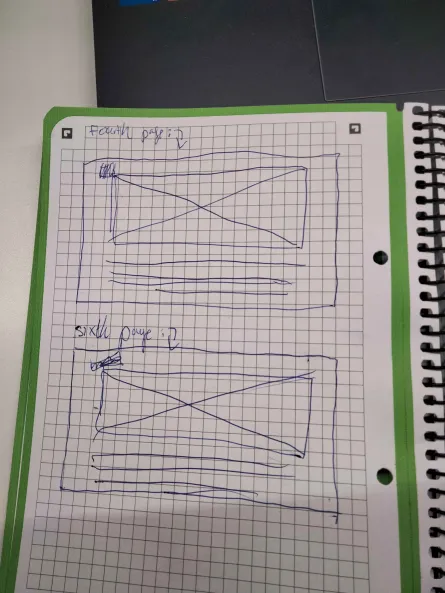 Fourth page :2
sixth page :2